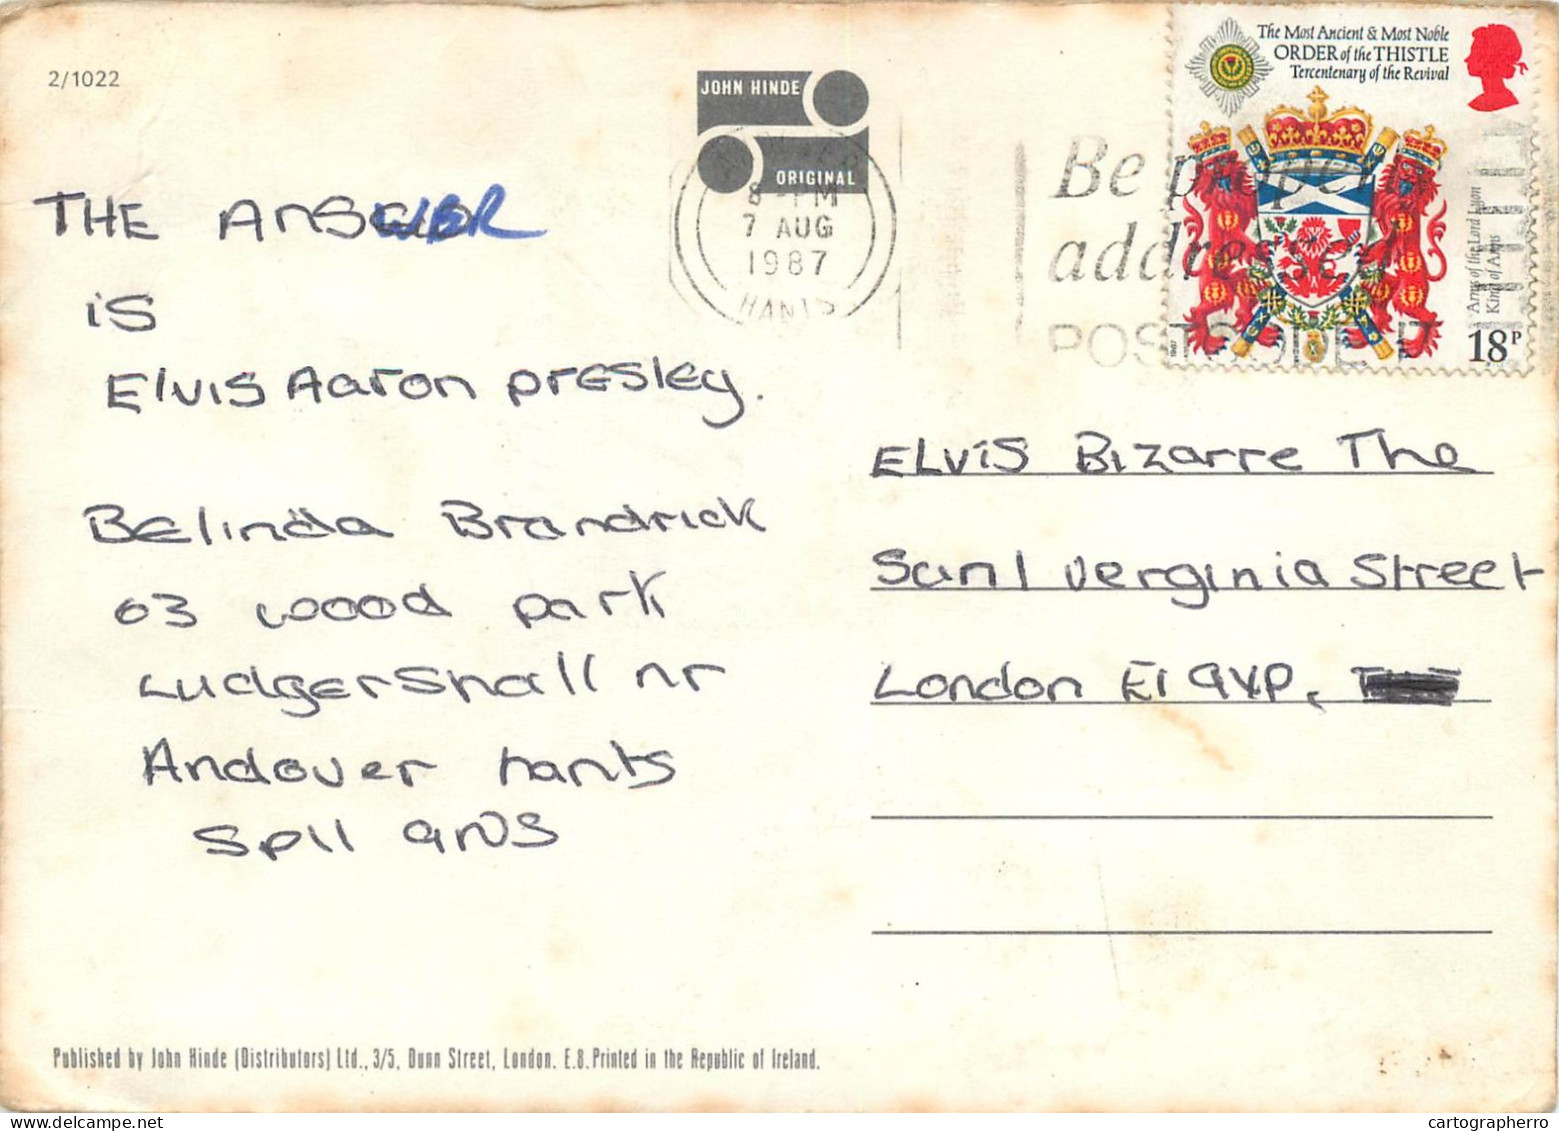 2/1022
JOHN HINDE
ORIGINAL
7 AUG
1987
HANTS
Be properly
addressed
POSTCODE IT
The Most Ancient & Most Noble
ORDER of the THISTLE
Tercentenary of the Revival
Arms of the Lord Lyon
King of Arms
1987
18P
THE AnSWER
iS
Elvis Aaron presley.
Belinda Brandrick
63 woood park
Ludgershall nr
Andover hants
Sp11 9NS
ELviS Bizarre The
Sun 1 verginia Street
London E1 9XP,
Published by John Hinde (Distributors) Ltd., 3/5, Dunn Street, London. E.8. Printed in the Republic of Ireland.
cartographerro